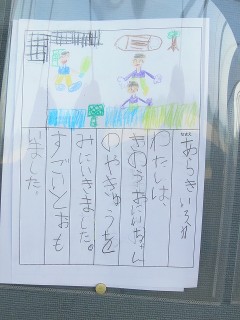 あらきいろは
わたしは、
きのうおにいちゃん
のやきゅうを
みにいきました。
すごいとおも
いました。